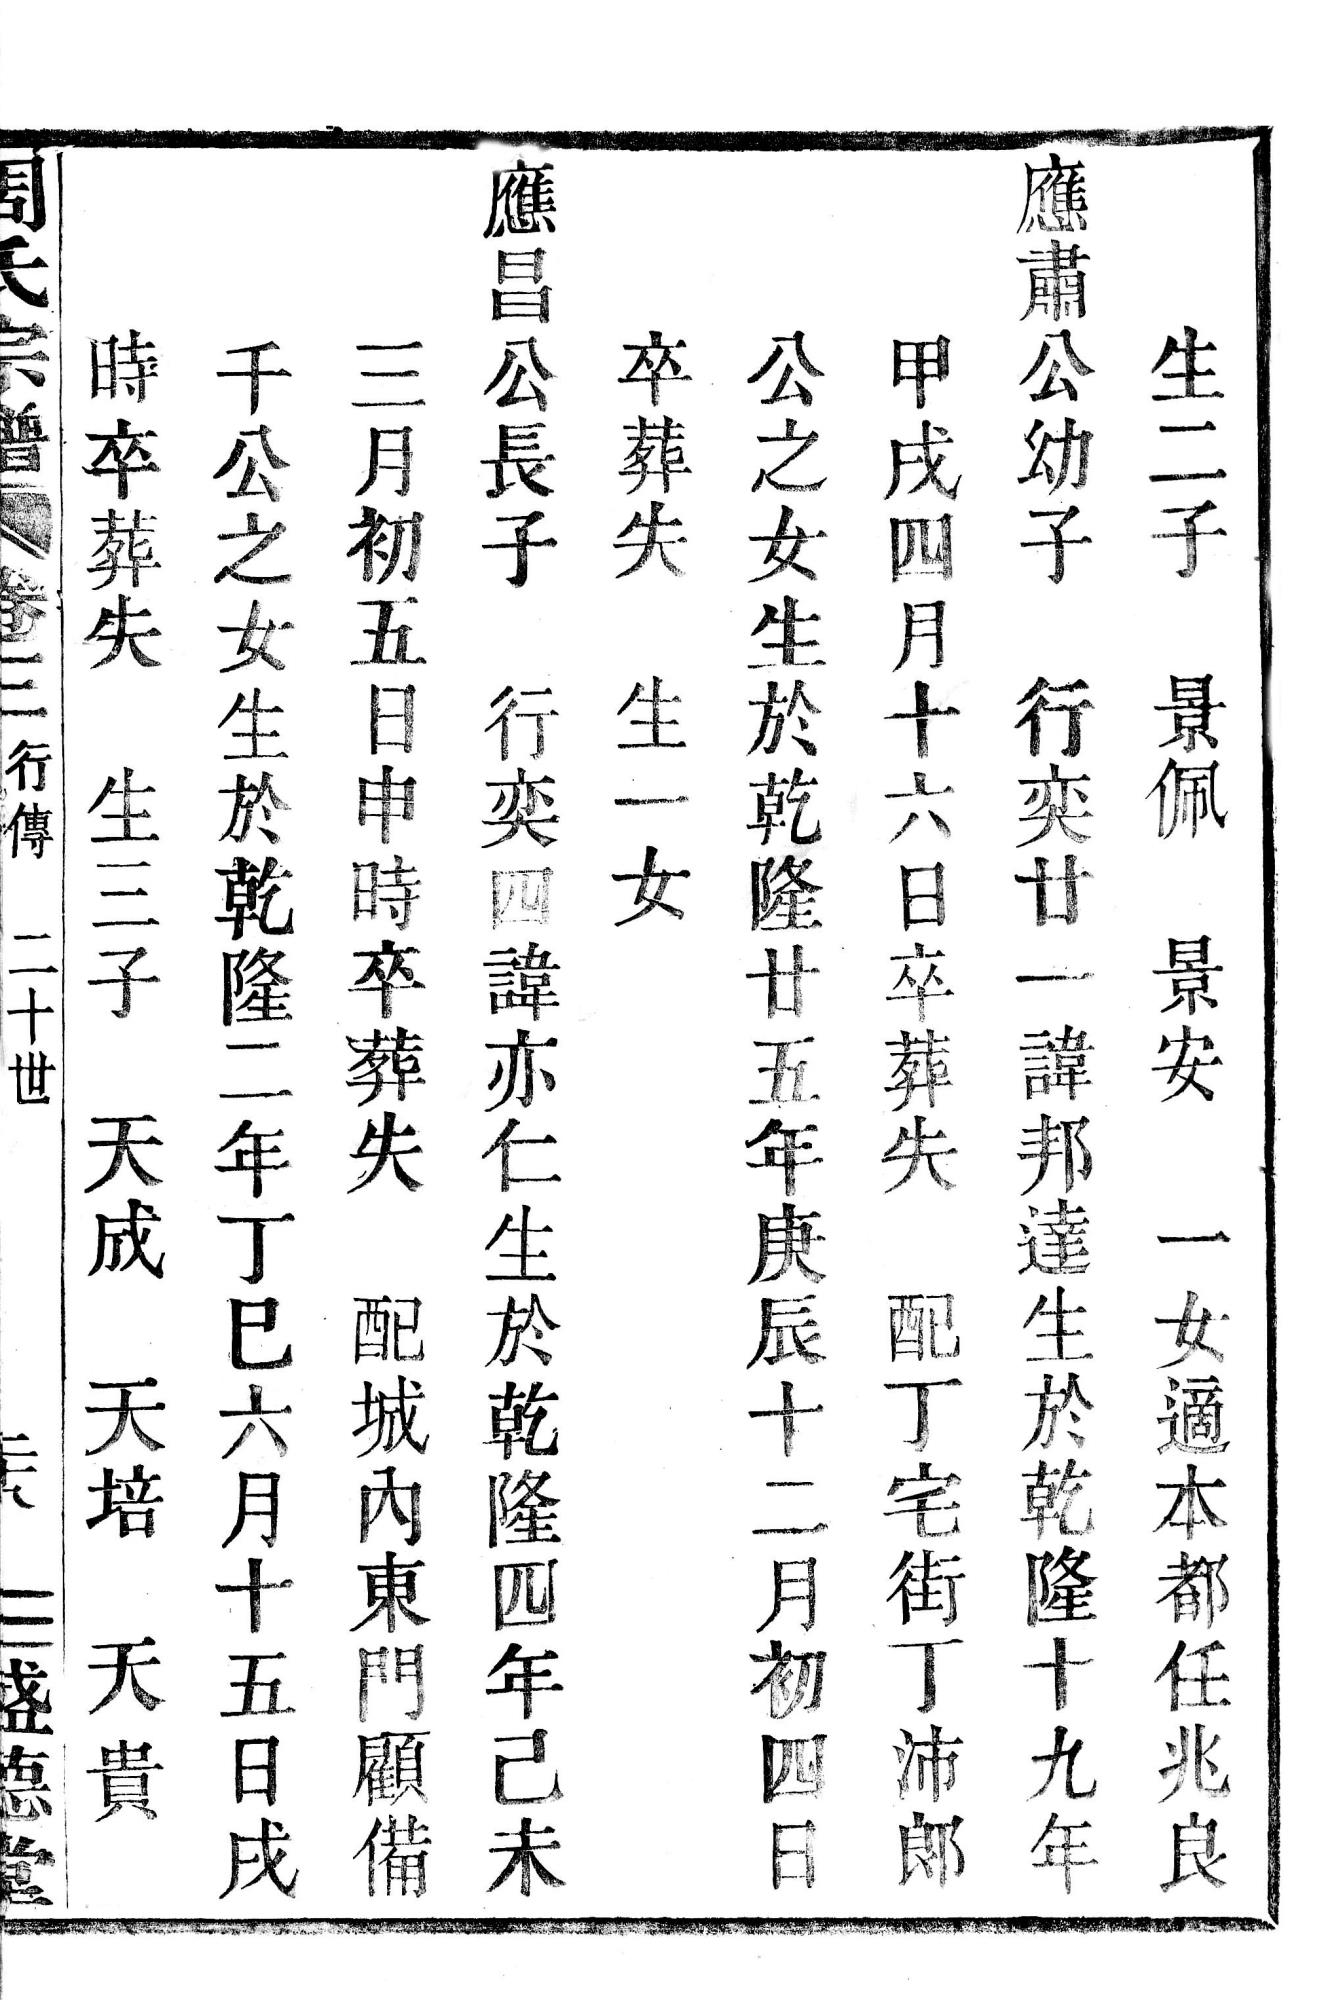 生二子　景佩　景安　一女適本都任兆良
應肅公幼子　行奕廿一諱邦達生於乾隆十九年
甲戌四月十六日卒葬失　配丁宅街丁沛郎
公之女生於乾隆廿五年庚辰十二月初四日
卒葬失　生一女
應昌公長子　行奕四諱亦仁生於乾隆四年己未
三月初五日申時卒葬失　配城內東門顧備
千公之女生於乾隆二年丁巳六月十五日戌
時卒葬失　生三子　天成　天培　天貴
周氏宗譜　卷三　行傳　二十世　盛德堂